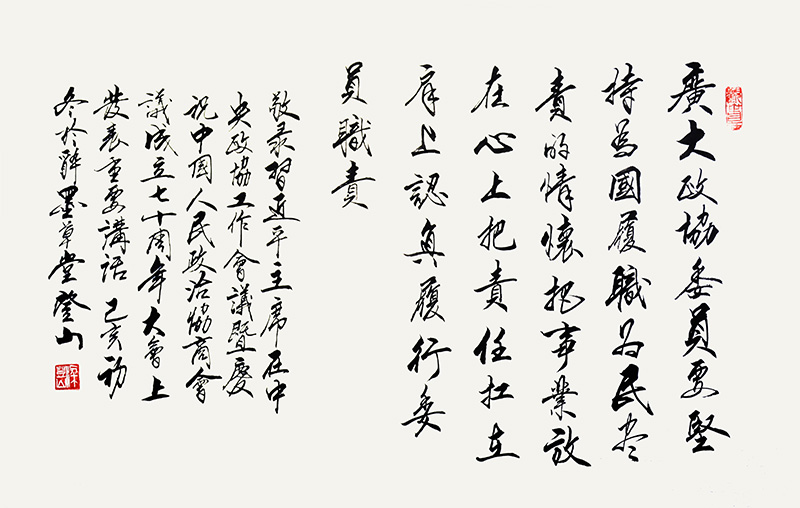 廣大政協委員要堅
持為國履職為民尽
責的情懷把事業放
在心上把責任扛在
肩上認真履行委
員職責
敬录習近平主席在中
央政協工作會議暨慶
祝中国人民政治協商會
議成立七十周年大會上
發表重要講話 己亥初
冬於醉墨草堂登山